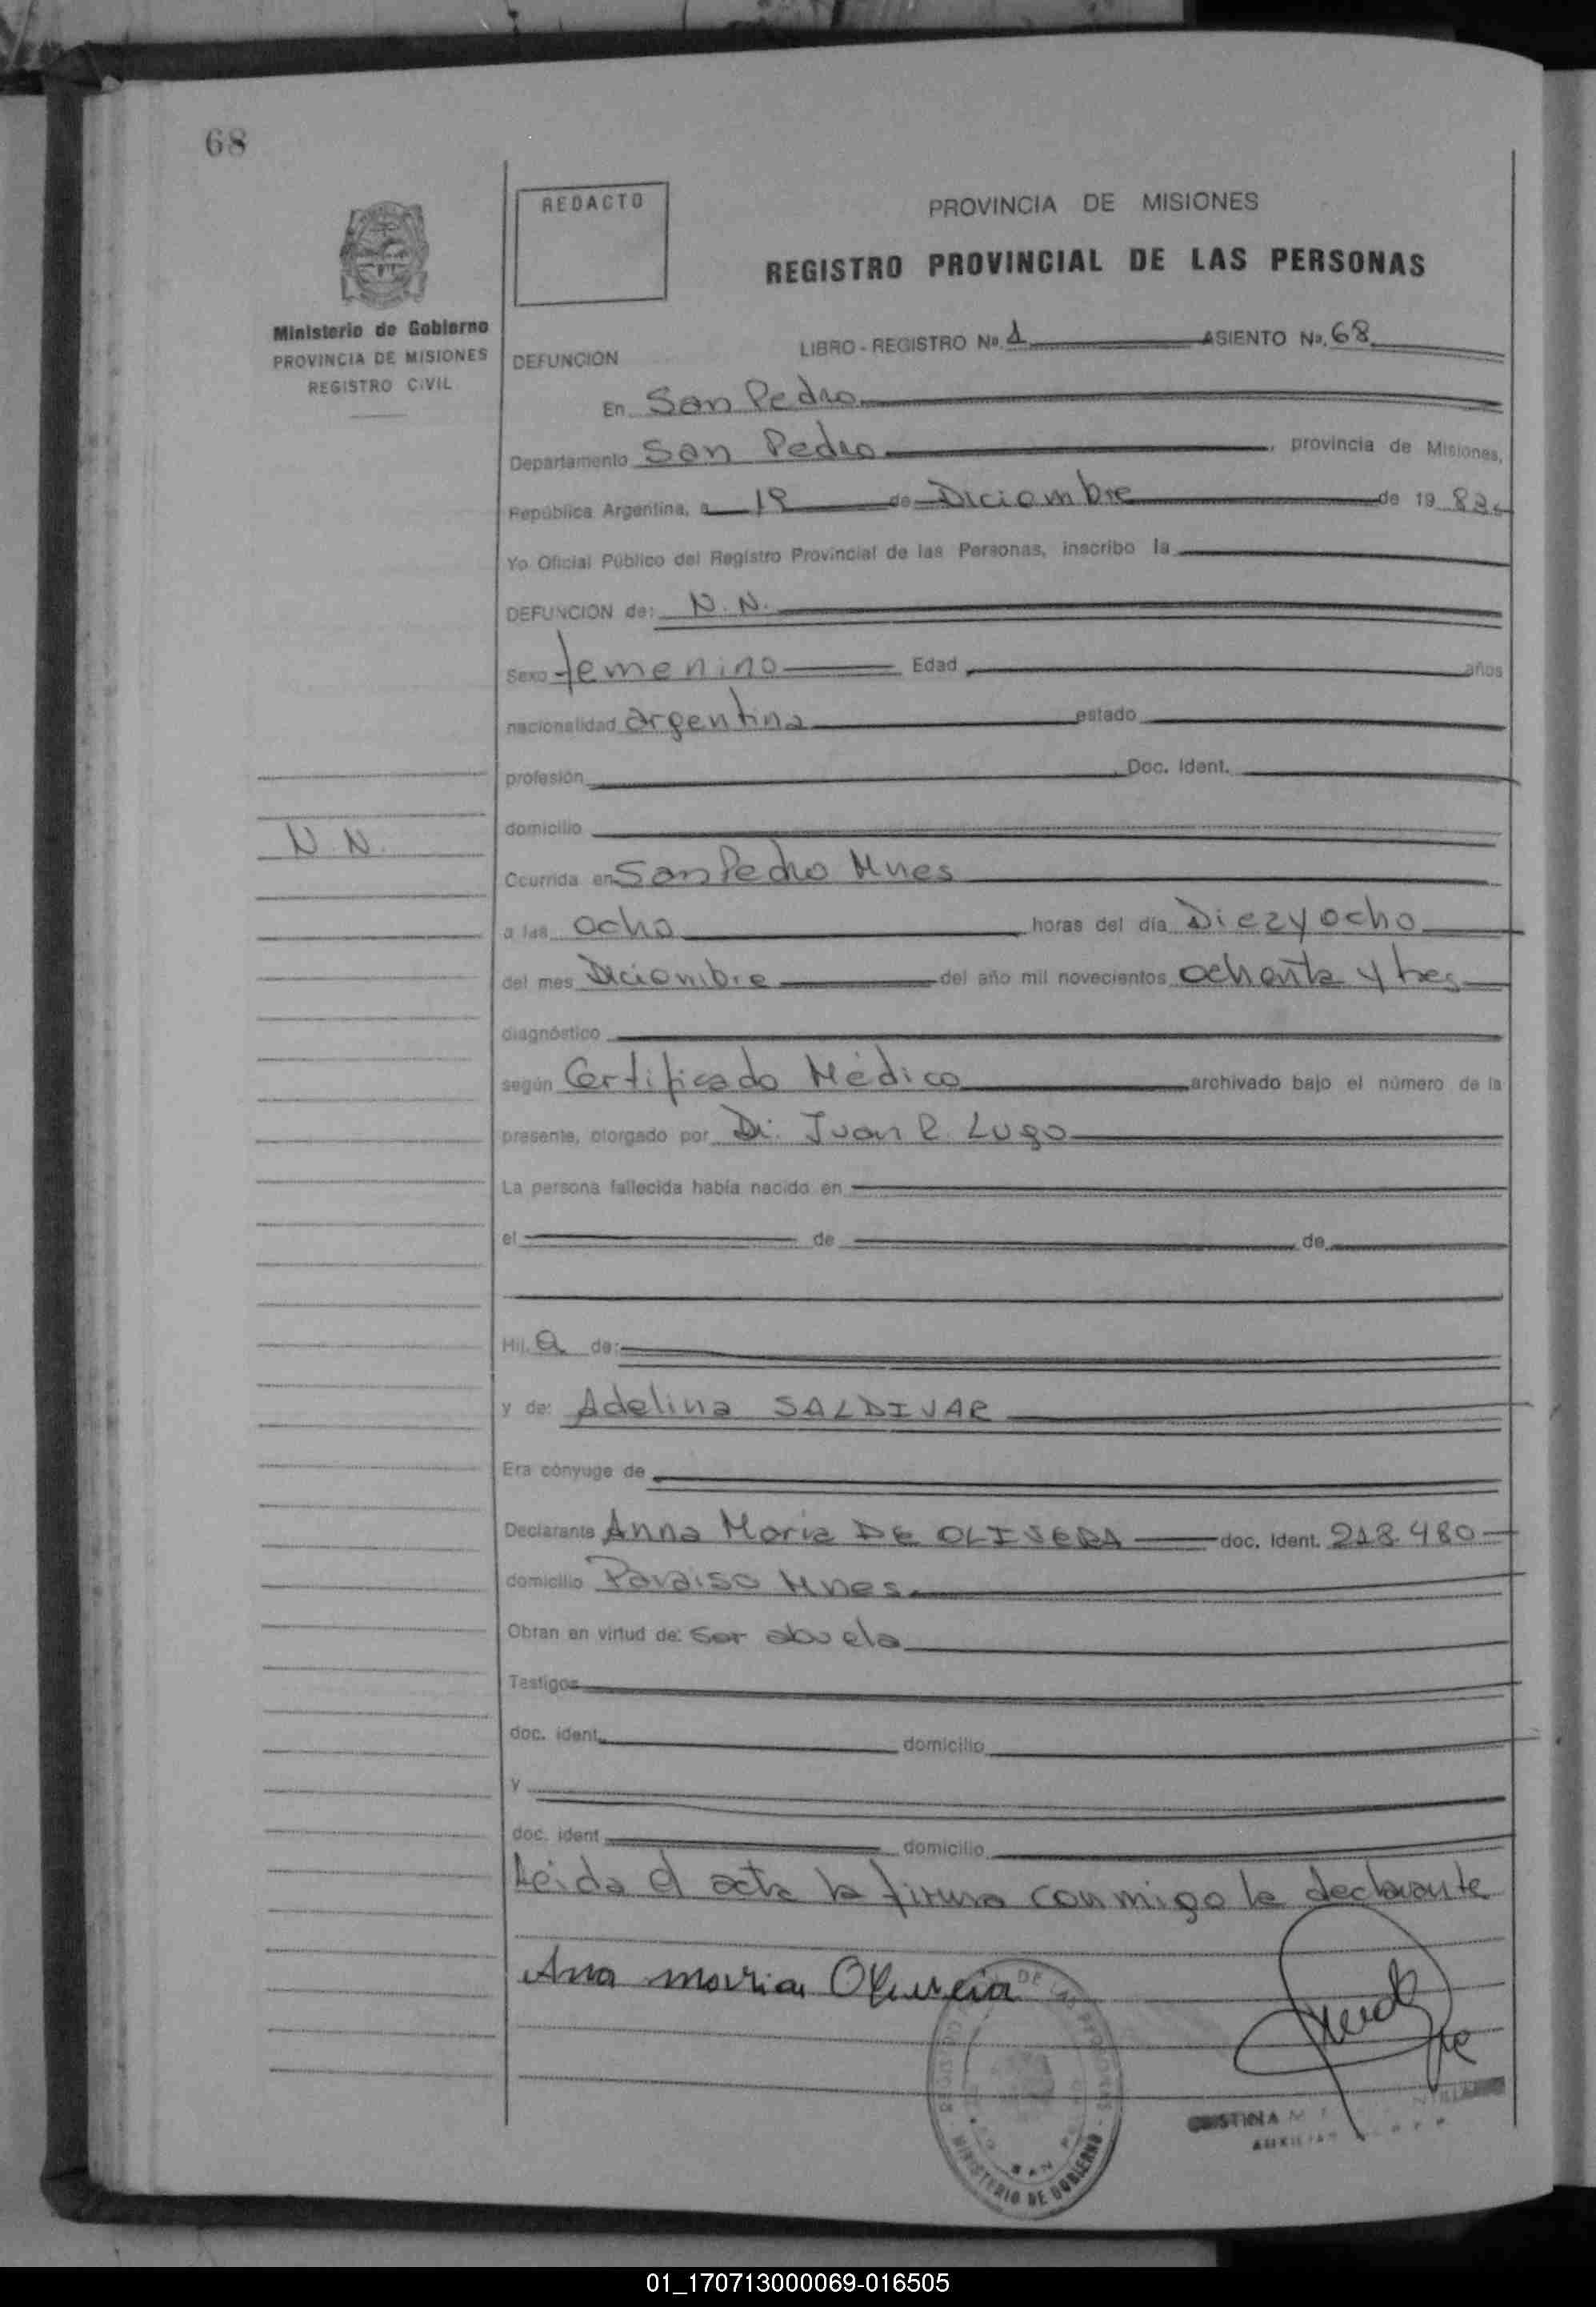 68
REDACTO
PROVINCIA DE MISIONES
REGISTRO PROVINCIAL DE LAS PERSONAS
Ministerio de Gobierno
PROVINCIA DE MISIONES
REGISTRO CIVIL
DEFUNCION
LIBRO - REGISTRO Nº 1 ASIENTO Nº 68
En San Pedro
Departamento San Pedro, provincia de Misiones,
República Argentina, a de Diciembre de 19 83
Yo Oficial Público del Registro Provincial de las Personas, inscribo la
DEFUNCION de: N. N.
Sexo femenino Edad años
nacionalidad argentina estado
profesión Doc. Ident.
domicilio
N N.
Ocurrida en San Pedro Mnes
a las ocho horas del día Diezyocho
del mes Diciembre del año mil novecientos ochenta y tres
diagnóstico
según Certificado Médico archivado bajo el número de la
presente, otorgado por Dr. Juan R. Lugo
La persona fallecida había nacido en
el de de
Hij a de:
y de: Adelina SALDIVAR
Era cónyuge de
Declarante Anna Maria DE OLIVERA doc. Ident. 218.480
domicilio Paraiso Mnes
Obran en virtud de: ser abuela
Testigos
doc. ident. domicilio
y
doc. ident domicilio
Leida el acta la firma conmigo la declarante
Ana maria
DE LAS PERSONAS
SAN
MINISTERIO DE GOBIERNO
01_170713000069-016505